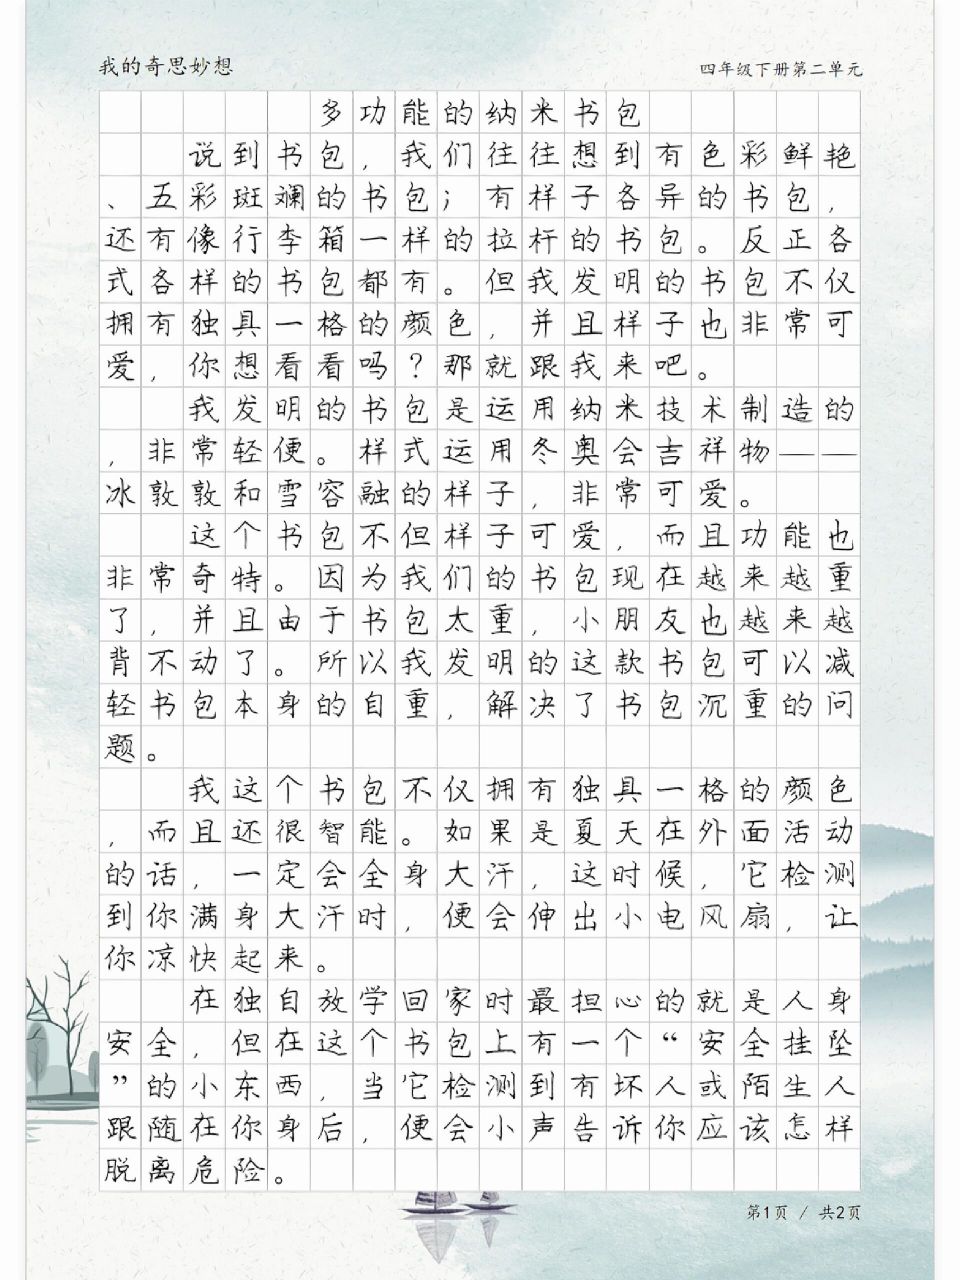 我的奇思妙想
四年级下册第二单元
多功能的纳米书包
说到书包，我们往往想到有色彩鲜艳
、五彩斑斓的书包；有样子各异的书包，
还有像行李箱一样的拉杆的书包。反正各
式各样的书包都有。但我发明的书包不仅
拥有独具一格的颜色，并且样子也非常可
爱，你想看看吗？那就跟我来吧。
我发明的书包是运用纳米技术制造的
，非常轻便。样式运用冬奥会吉祥物——
冰敦敦和雪容融的样子，非常可爱。
这个书包不但样子可爱，而且功能也
非常奇特。因为我们的书包现在越来越重
了，并且由于书包太重，小朋友也越来越
背不动了。所以我发明的这款书包可以减
轻书包本身的自重，解决了书包沉重的问
题。
我这个书包不仅拥有独具一格的颜色
，而且还很智能。如果是夏天在外面活动
的话，一定会全身大汗，这时候，它检测
到你满身大汗时，便会伸出小电风扇，让
你凉快起来。
在独自放学回家时最担心的就是人身
安全，但在这个书包上有一个“安全挂坠
”的小东西，当它检测到有坏人或陌生人
跟随在你身后，便会小声告诉你应该怎样
脱离危险。
第1页 / 共2页